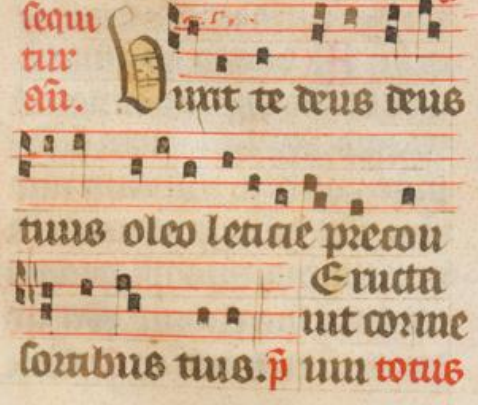 sequi
tur
añ. Unxit te deus deus
tuus oleo leticie precon
sortibus tuis. p̃
Eructa
uit cor me
um totus